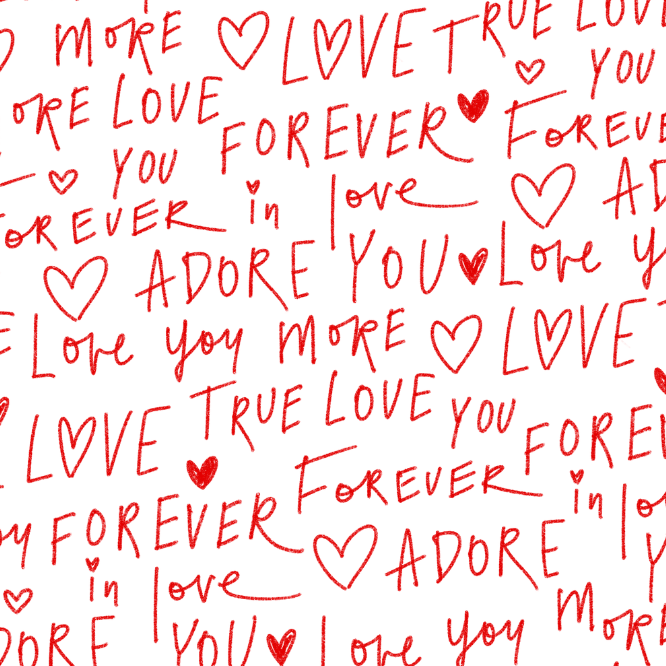 MoRE LOVE TRUE LOV
oRE LOVE FOREVER YOU
YOU FoREVE
oREVER in love AD
ADORE YOU Love y
Love you MoRE LOVE
LOVE TRUE LOVE YOU FOREV
oy FOREVER FoREVER in lo
in love ADORE Y
DORE YOU Love you MoRE